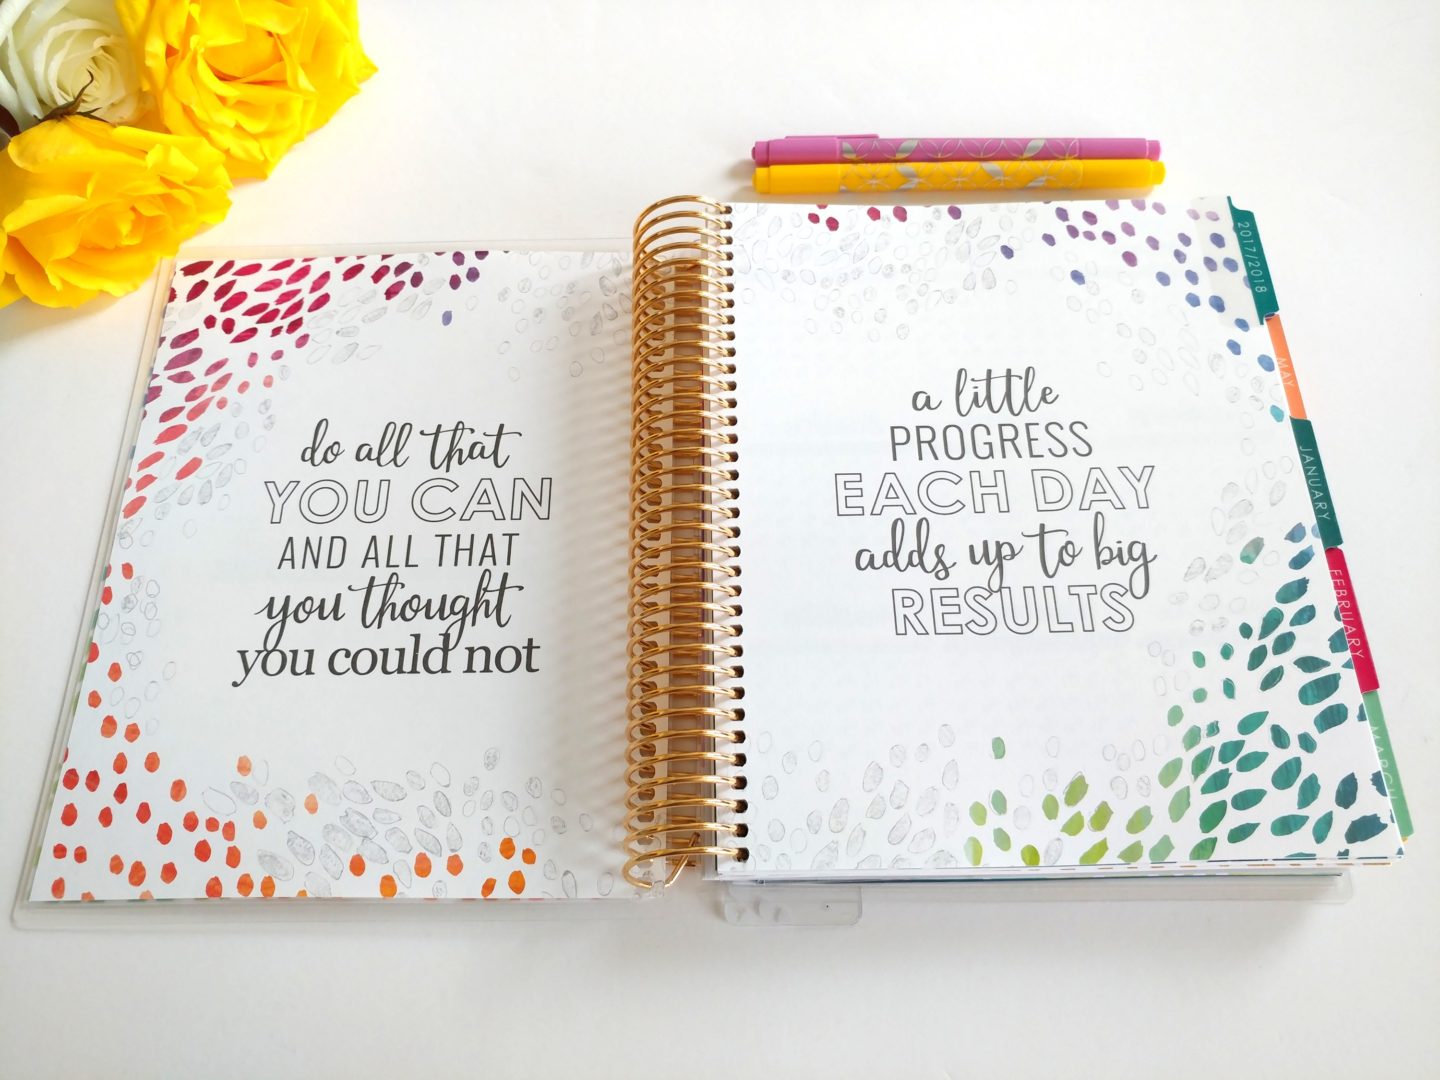 do all that
YOU CAN
AND ALL THAT
you thought
you could not
a little
PROGRESS
EACH DAY
adds up to big
RESULTS
2017/2018
MAY
JANUARY
FEBRUARY
MARCH